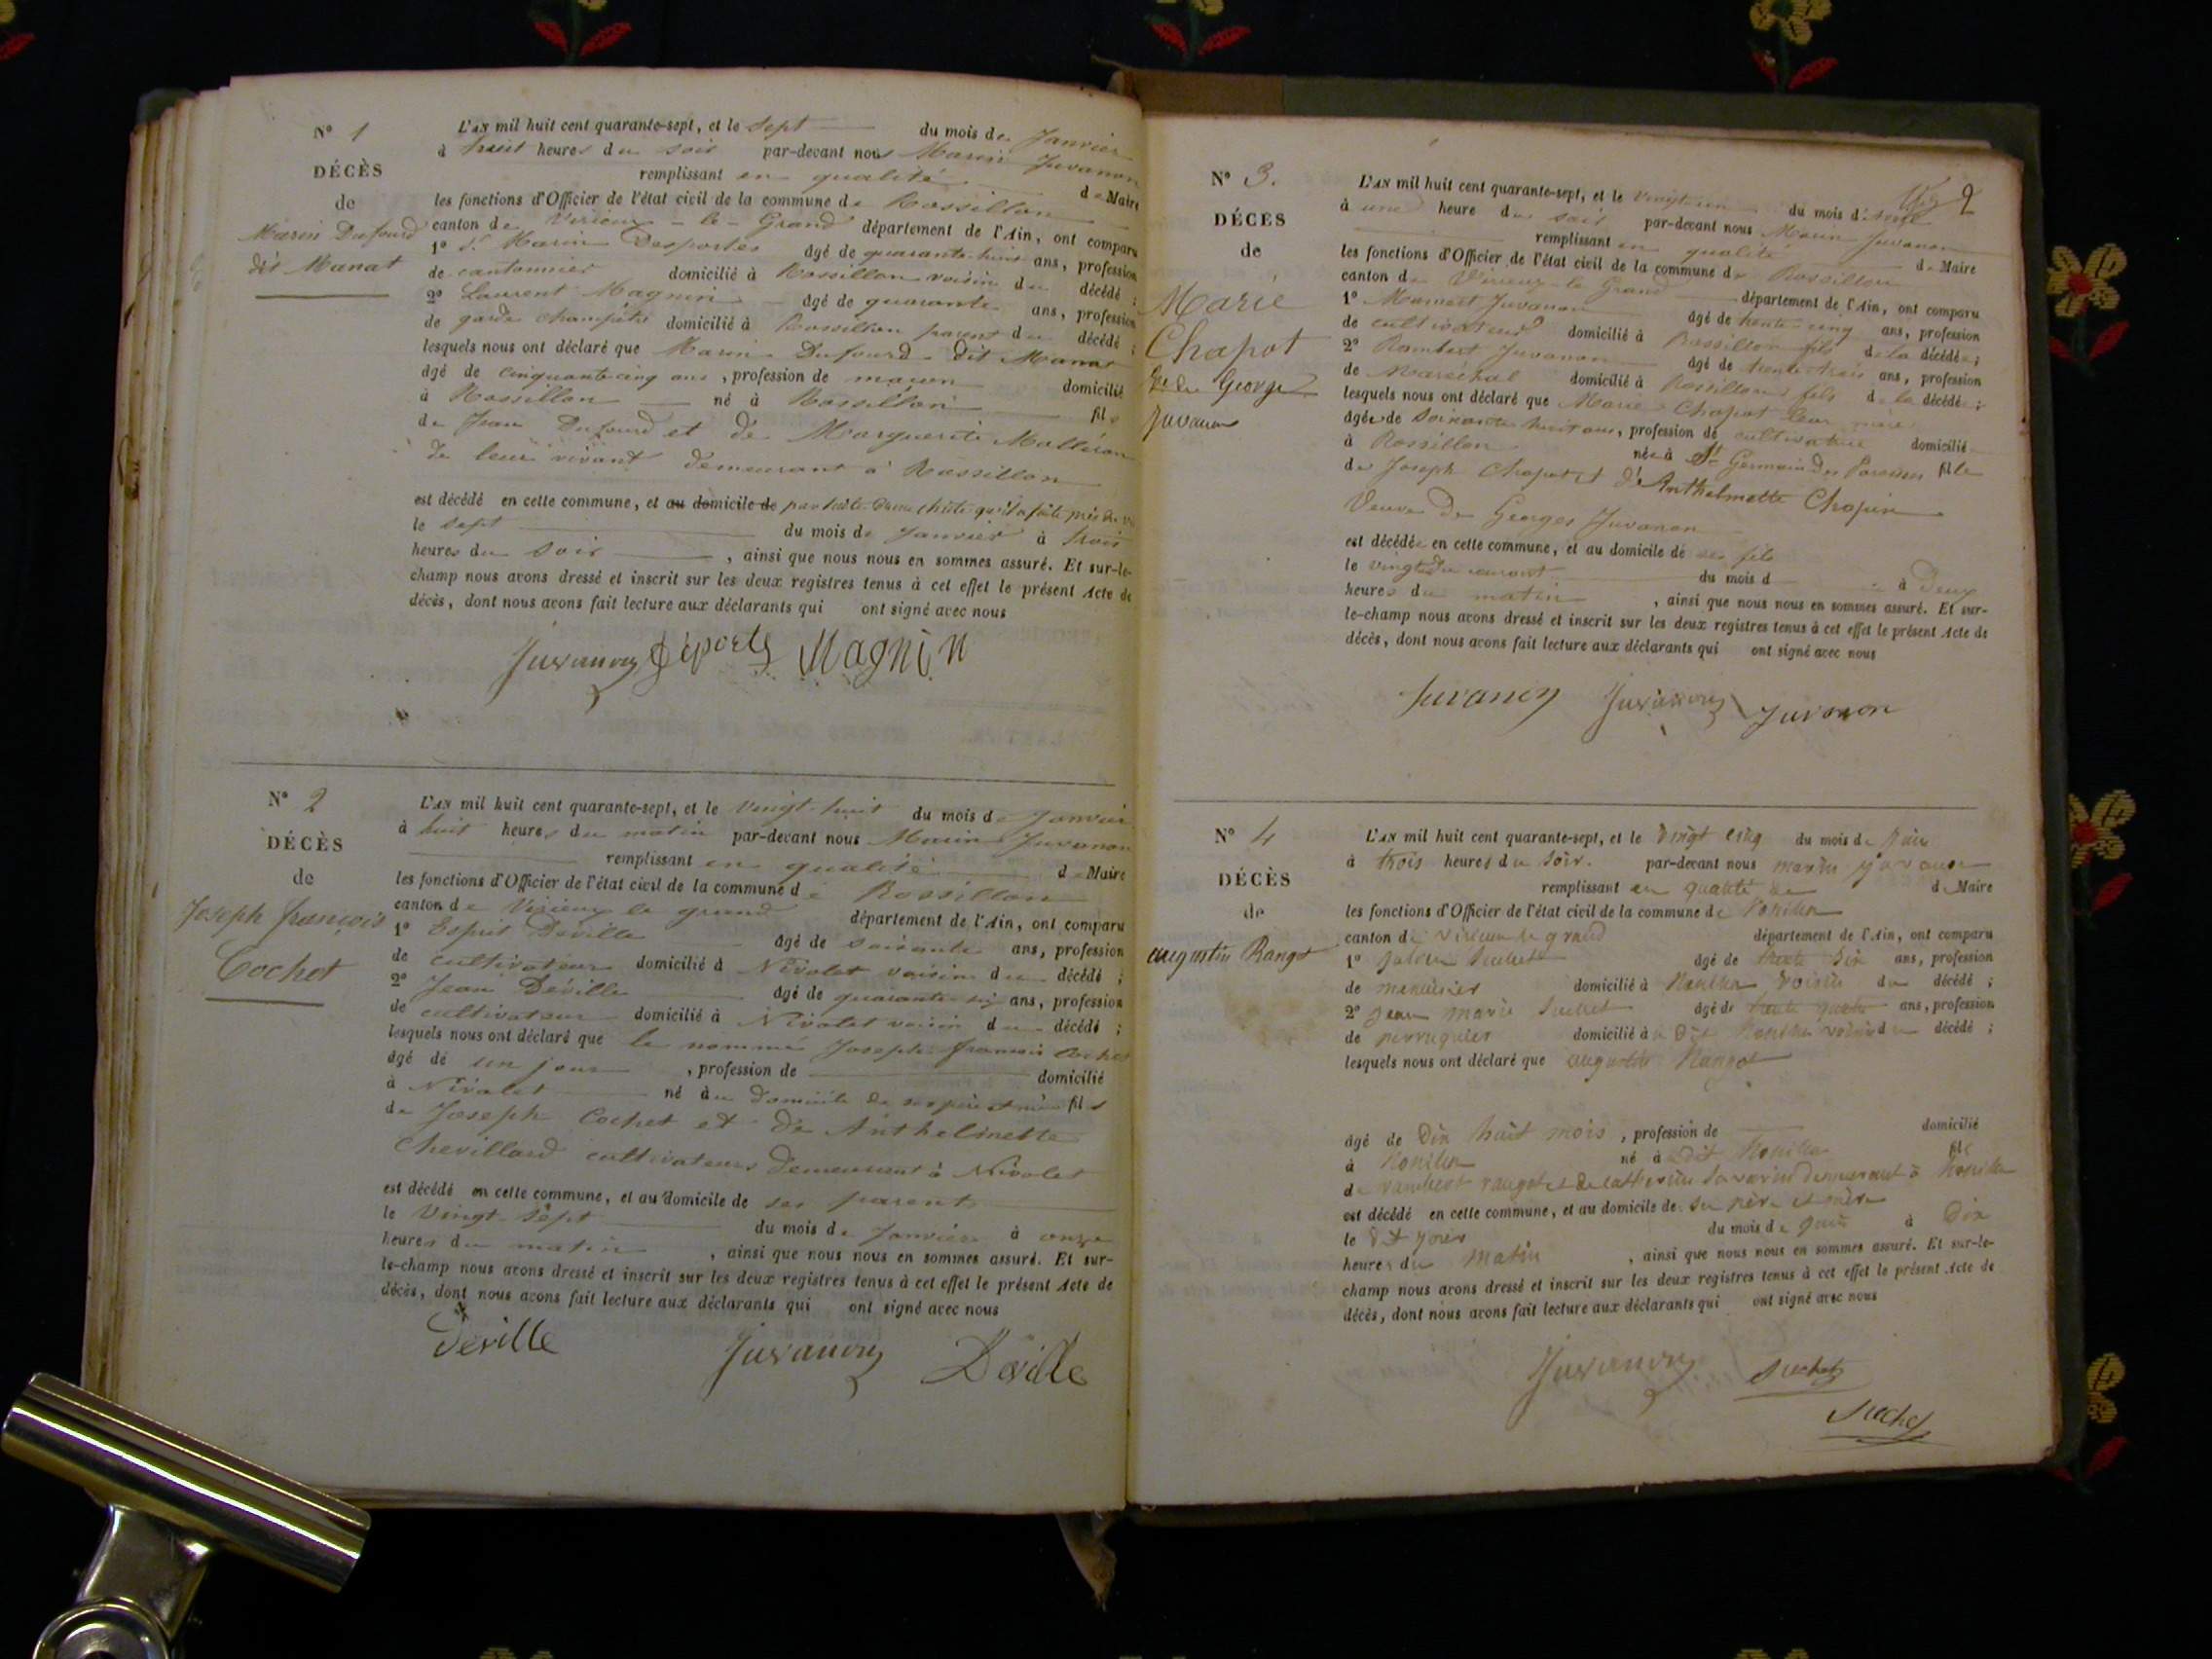 N° 1
DÉCÈS
de
Marin Dufourd
dit Manat
L'AN mil huit cent quarante-sept, et le sept du mois de Janvier
à huit heures du soir par-devant nous Marin Juvanon
remplissant en qualité de Maire
les fonctions d'Officier de l'état civil de la commune de Rossillon
canton de Virieux-le-Grand département de l'Ain, ont comparu
1° St Marin Desportes âgé de quarante-huit ans, profession
de cantonnier domicilié à Rossillon voisin du décédé ;
2° Laurent Magnin âgé de quarante ans, profession
de garde champêtre domicilié à Rossillon parent du décédé ;
lesquels nous ont déclaré que Marin Dufourd dit Manat
âgé de cinquante cinq ans, profession de maçon domicilié
à Rossillon né à Rossillon fils
de Jean Dufourd et de Marguerite
de leur vivant demeurant à Rossillon
est décédé en cette commune, et au domicile de par suite d'une chute qu'il a faite près du
le sept du mois de Janvier à trois
heures du soir, ainsi que nous nous en sommes assuré. Et sur-le-
champ nous avons dressé et inscrit sur les deux registres tenus à cet effet le présent Acte de
décès, dont nous avons fait lecture aux déclarants qui ont signé avec nous
Juvanon déportes Magnin
N° 2
DÉCÈS
de
Joseph françois
Cochet
L'AN mil huit cent quarante-sept, et le vingt-huit du mois de Janvier
à huit heures du matin par-devant nous Marin Juvanon
remplissant en qualité de Maire
les fonctions d'Officier de l'état civil de la commune de Rossillon
canton de Virieux le grand département de l'Ain, ont comparu
1° Esprit Deville âgé de soixante ans, profession
de cultivateur domicilié à Nivolet voisin du décédé ;
2° Jean Déville âgé de quarante six ans, profession
de cultivateur domicilié à Nivolet voisin du décédé ;
lesquels nous ont déclaré que le nommé Joseph françois Cochet
âgé de un jour, profession de domicilié
à Nivolet né au domicile de ses père et mère fils
de Joseph Cochet et de Anthelmette
Chevillard cultivateurs demeurant à Nivolet
est décédé en cette commune, et au domicile de ses parent
le vingt-sept du mois de Janvier à onze
heures du matin, ainsi que nous nous en sommes assuré. Et sur-
le-champ nous avons dressé et inscrit sur les deux registres tenus à cet effet le présent Acte de
décès, dont nous avons fait lecture aux déclarants qui ont signé avec nous
Deville Juvanon Déville
2
N° 3.
DÉCÈS
de
Marie
Chapot
Ve de George
Juvanon
L'AN mil huit cent quarante-sept, et le vingt-un du mois d'avril
à une heure du soir par-devant nous Marin Juvanon
remplissant en qualité de Maire
les fonctions d'Officier de l'état civil de la commune de Rossillon
canton de Virieux-le-Grand département de l'Ain, ont comparu
1° Mamert Juvanon âgé de trente-cinq ans, profession
de cultivateur domicilié à Rossillon fils de la décédée ;
2° Rambert Juvanon âgé de trente-trois ans, profession
de Maréchal domicilié à Rossillon fils de la décédée ;
lesquels nous ont déclaré que Marie Chapot leur mère
âgée de soixante huit ans, profession de cultivatrice domicilié
à Rossillon née à St Germain les Paroisses fille
de Joseph Chapot et d'Anthelmette Chapin
Veuve de Georges Juvanon
est décédée en cette commune, et au domicile de ses fils
le vingt du courant du mois d à deux
heures du matin, ainsi que nous nous en sommes assuré. Et sur-
le-champ nous avons dressé et inscrit sur les deux registres tenus à cet effet le présent Acte de
décès, dont nous avons fait lecture aux déclarants qui ont signé avec nous
Juvanon Juvanon Juvanon
N° 4
DÉCÈS
de
augustin Rangot
L'AN mil huit cent quarante-sept, et le vingt cinq du mois de
à trois heures du soir. par-devant nous marin juvanon
remplissant en qualité de de Maire
les fonctions d'Officier de l'état civil de la commune de
canton de virieux le grand département de l'Ain, ont comparu
1° Suchet âgé de trente six ans, profession
de menuisier domicilié à voisin du décédé ;
2° jean marie Suchet âgé de trente quatre ans, profession
de perruquier domicilié à dit voisin du décédé ;
lesquels nous ont déclaré que augustin Rangot
âgé de dix huit mois, profession de domicilié
à né à dit fils
de rambert rangot et de catherine demeurant à
est décédé en cette commune, et au domicile de ses père et mère
le dit jour du mois de à dix
heures du matin, ainsi que nous nous en sommes assuré. Et sur-le-
champ nous avons dressé et inscrit sur les deux registres tenus à cet effet le présent Acte de
décès, dont nous avons fait lecture aux déclarants qui ont signé avec nous
Juvanon Suchet
Suchet